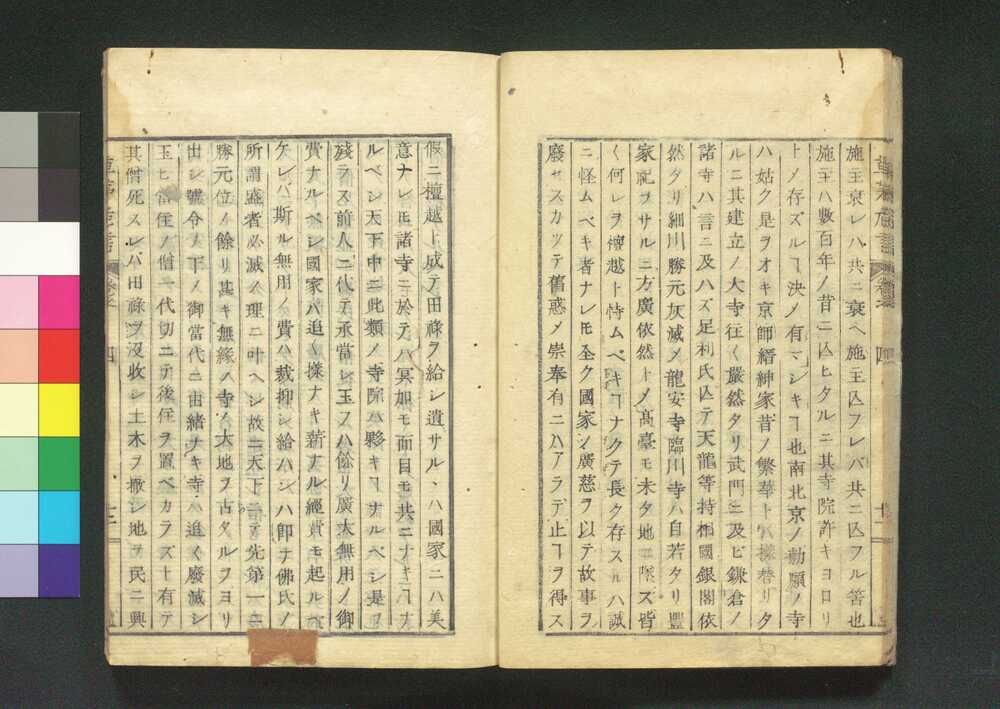 施主衰レハ共ニ衰ヘ施主亾フレバ共ニ亾フル筈也
施主ハ數百年ノ昔ニ亾ヒタルニ其寺院許キヨロリ
トノ存ズルヿ決ノ有マシキヿ也南北京ノ勅願ノ寺
ハ姑ク是ヲオキ京師縉紳家昔ノ繁華トハ様替リタ
ルニ其建立ノ大寺往〱嚴然タリ武門ニ及ビ鎌倉ノ
諸寺ハ言ニ及ハズ足利氏亾テ天龍等持相國銀閣依
然タリ細川勝元灰滅メ龍安寺臨川寺ハ自若タリ豐
家祀ヲサルニ方廣依然トノ髙臺モ未タ地ニ墜ズ皆
〱何レヲ檀越ト恃ムベキヿナクテ長ク存スルハ誠
ニ怪ムベキ者ナレモ全ク國家ノ廣慈ヲ以テ故事ヲ
廢セスカツテ舊惑メ崇奉有ニハアラデ止ヿヲ得ス
假ニ檀越ト成テ田祿ヲ給シ遺サルヽハ國家ニハ美
意ナレモ諸寺ニ於テハ冥加モ面目モ共ニナキヿナ
ルベシ天下中ニ此類ノ寺院ハ夥キヿナルベシ是ヲ
殘ラス前人ニ代テ承當シ玉フハ餘リ廣大無用ノ御
費ナルベシ國家ハ追〱様ナキ新ナル經費モ起ルヘ
ケレバ斯ル無用ノ費ハ裁抑シ給ハンハ即ナ佛氏ノ
所謂盛者必滅ノ理ニ叶ヘシ故ニ天下ニテ先第一ニ
勝元位ノ餘リ甚キ無縁ノ寺ノ大地ヲ占タルヲヨリ
出シ號令ヲ下ノ御當代ニ由緒ナキ寺ハ追〱廢滅シ
玉ヒ當住ノ僧一代切ニテ後住ヲ置ベカラズト有テ
其僧死スレバ田祿ヲ沒收シ土木ヲ撤シ地ヲ民ニ與